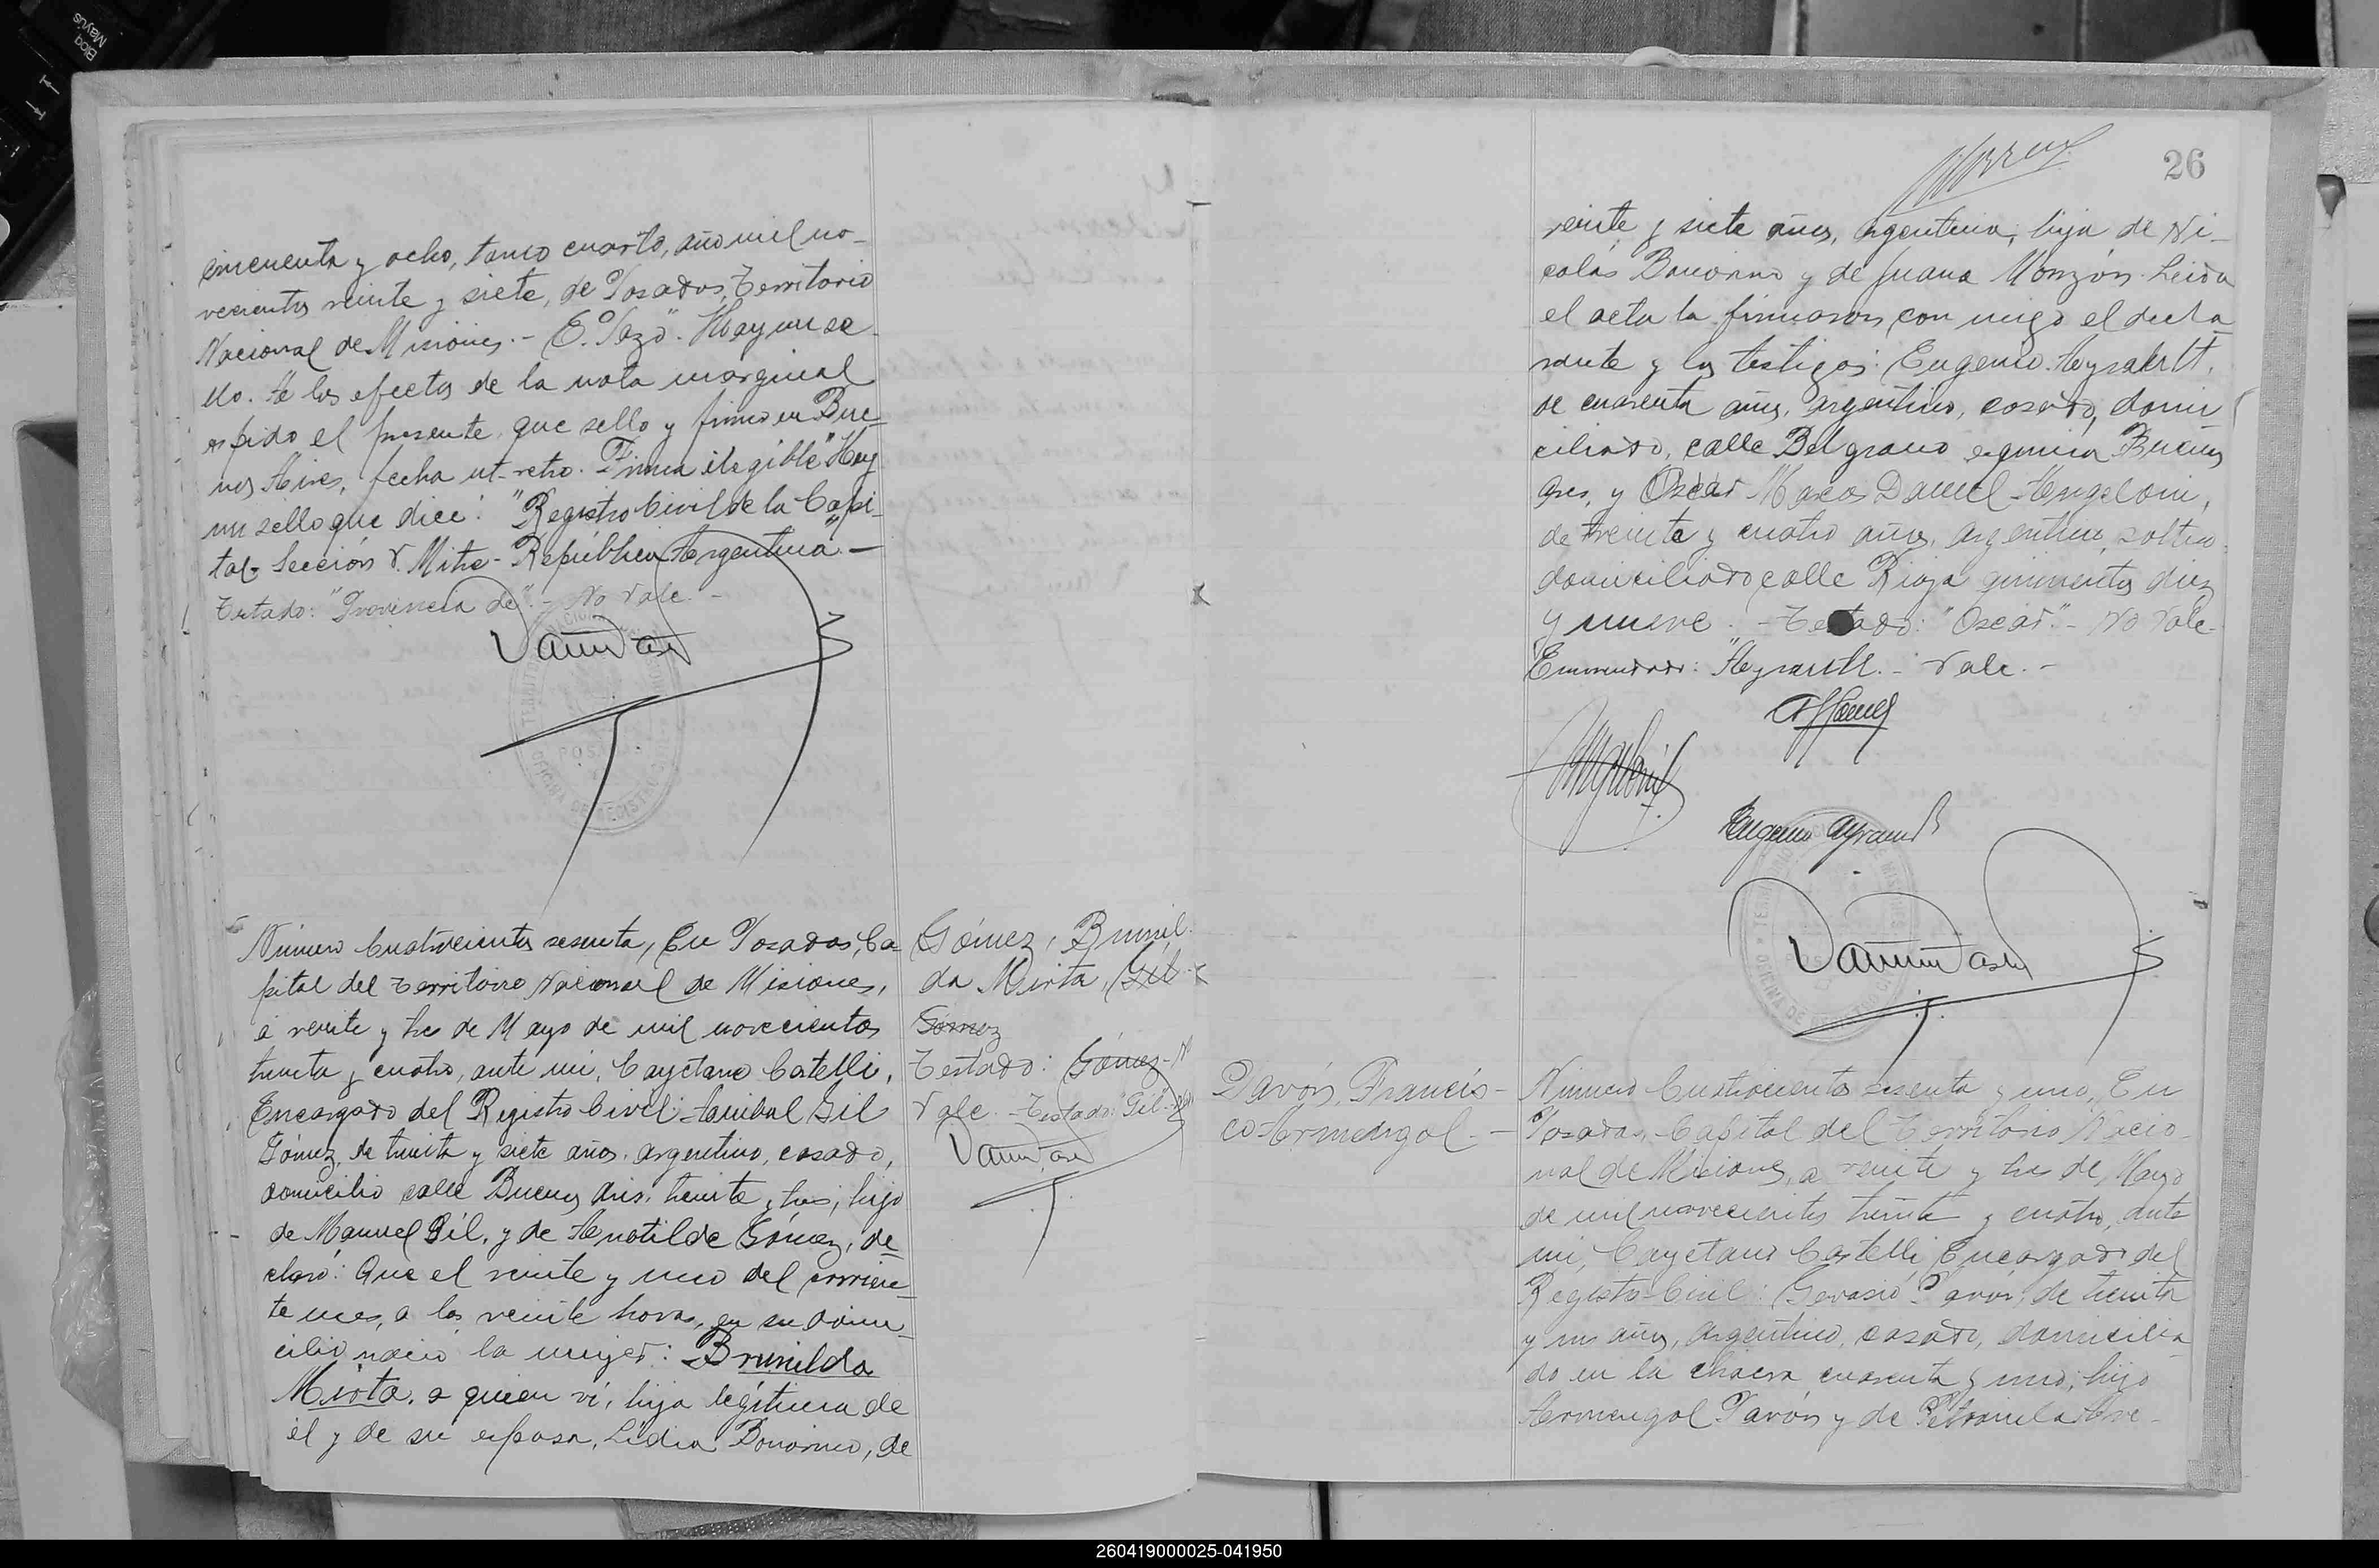 cincuenta y ocho, tomo cuarto, año mil no-
vecientos veinte y siete, de Posadas, Territorio
Nacional de Misiones.- E. Pezo". Hay un se-
llo. A los efectos de la nota marginal
expido el presente que sello y firmo en Bue-
nos Aires, fecha ut-retro. Firma ilegible" Hay
un sello que dice: "Registro Civil de la Capi-
tal- Sección V. Mitre- República Argentina".-
Testado: "Provincia de".- No Vale.-
Número Cuatrocientos sesenta, En Posadas, Ca-
pital del Territorio Nacional de Misiones,
a veinte y tres de Mayo de mil novecientos
treinta y cuatro, ante mi, Cayetano Castelli,
Encargado del Registro Civil: Anibal Gil
Gómez, de treinta y siete años, argentino, casado,
domicilio calle Buenos Aires, treinta y tres; hijo
de Manuel Gil, y de Anatilde Gómez, de-
claró: Que el veinte y uno del corrien-
te mes, a las veinte horas, en su domi-
cilio nació la mujer: Brunilda
Mirta, a quien vi, hija legítima de
él y de su esposa, Lidia Bonorino, de
Gómez, Brunil-
da Mirta, Gil
Gómez
Testado: Gómez- N
Vale.- Testado: "Gil-
26
veinte y siete años, argentina, hija de Ni-
colás Bonorino y de Juana Monzón. Leida
el acta la firmaron con migo el decla-
rante y los testigos: Eugenio
de cuarenta años, argentino, casado, domi-
ciliado, calle Belgrano esquina Buenos
Aires, y Oscar Marcos Daniel Angeloni,
de treinta y cuatro años, argentino, soltero,
domiciliado calle Rioja quinientos diez
y nueve.- Testado: "Oscar".- No Vale.
Enmendado: Vale.-
Pavón, Francis-
co Armengol.-
Número Cuatrocientos sesenta y uno, En
Posadas, Capital del Territorio Nacio-
nal de Misiones, a veinte y tres de Mayo
de mil novecientos treinta y cuatro, ante
mi, Cayetano Castelli, Encargado del
Registro Civil: Gervasio Pavón, de treinta
y un años, argentino, casado, domicilia-
do en la chacra cuarenta y uno; hijo
Armengol Pavón y de Petronila
260419000025-041950